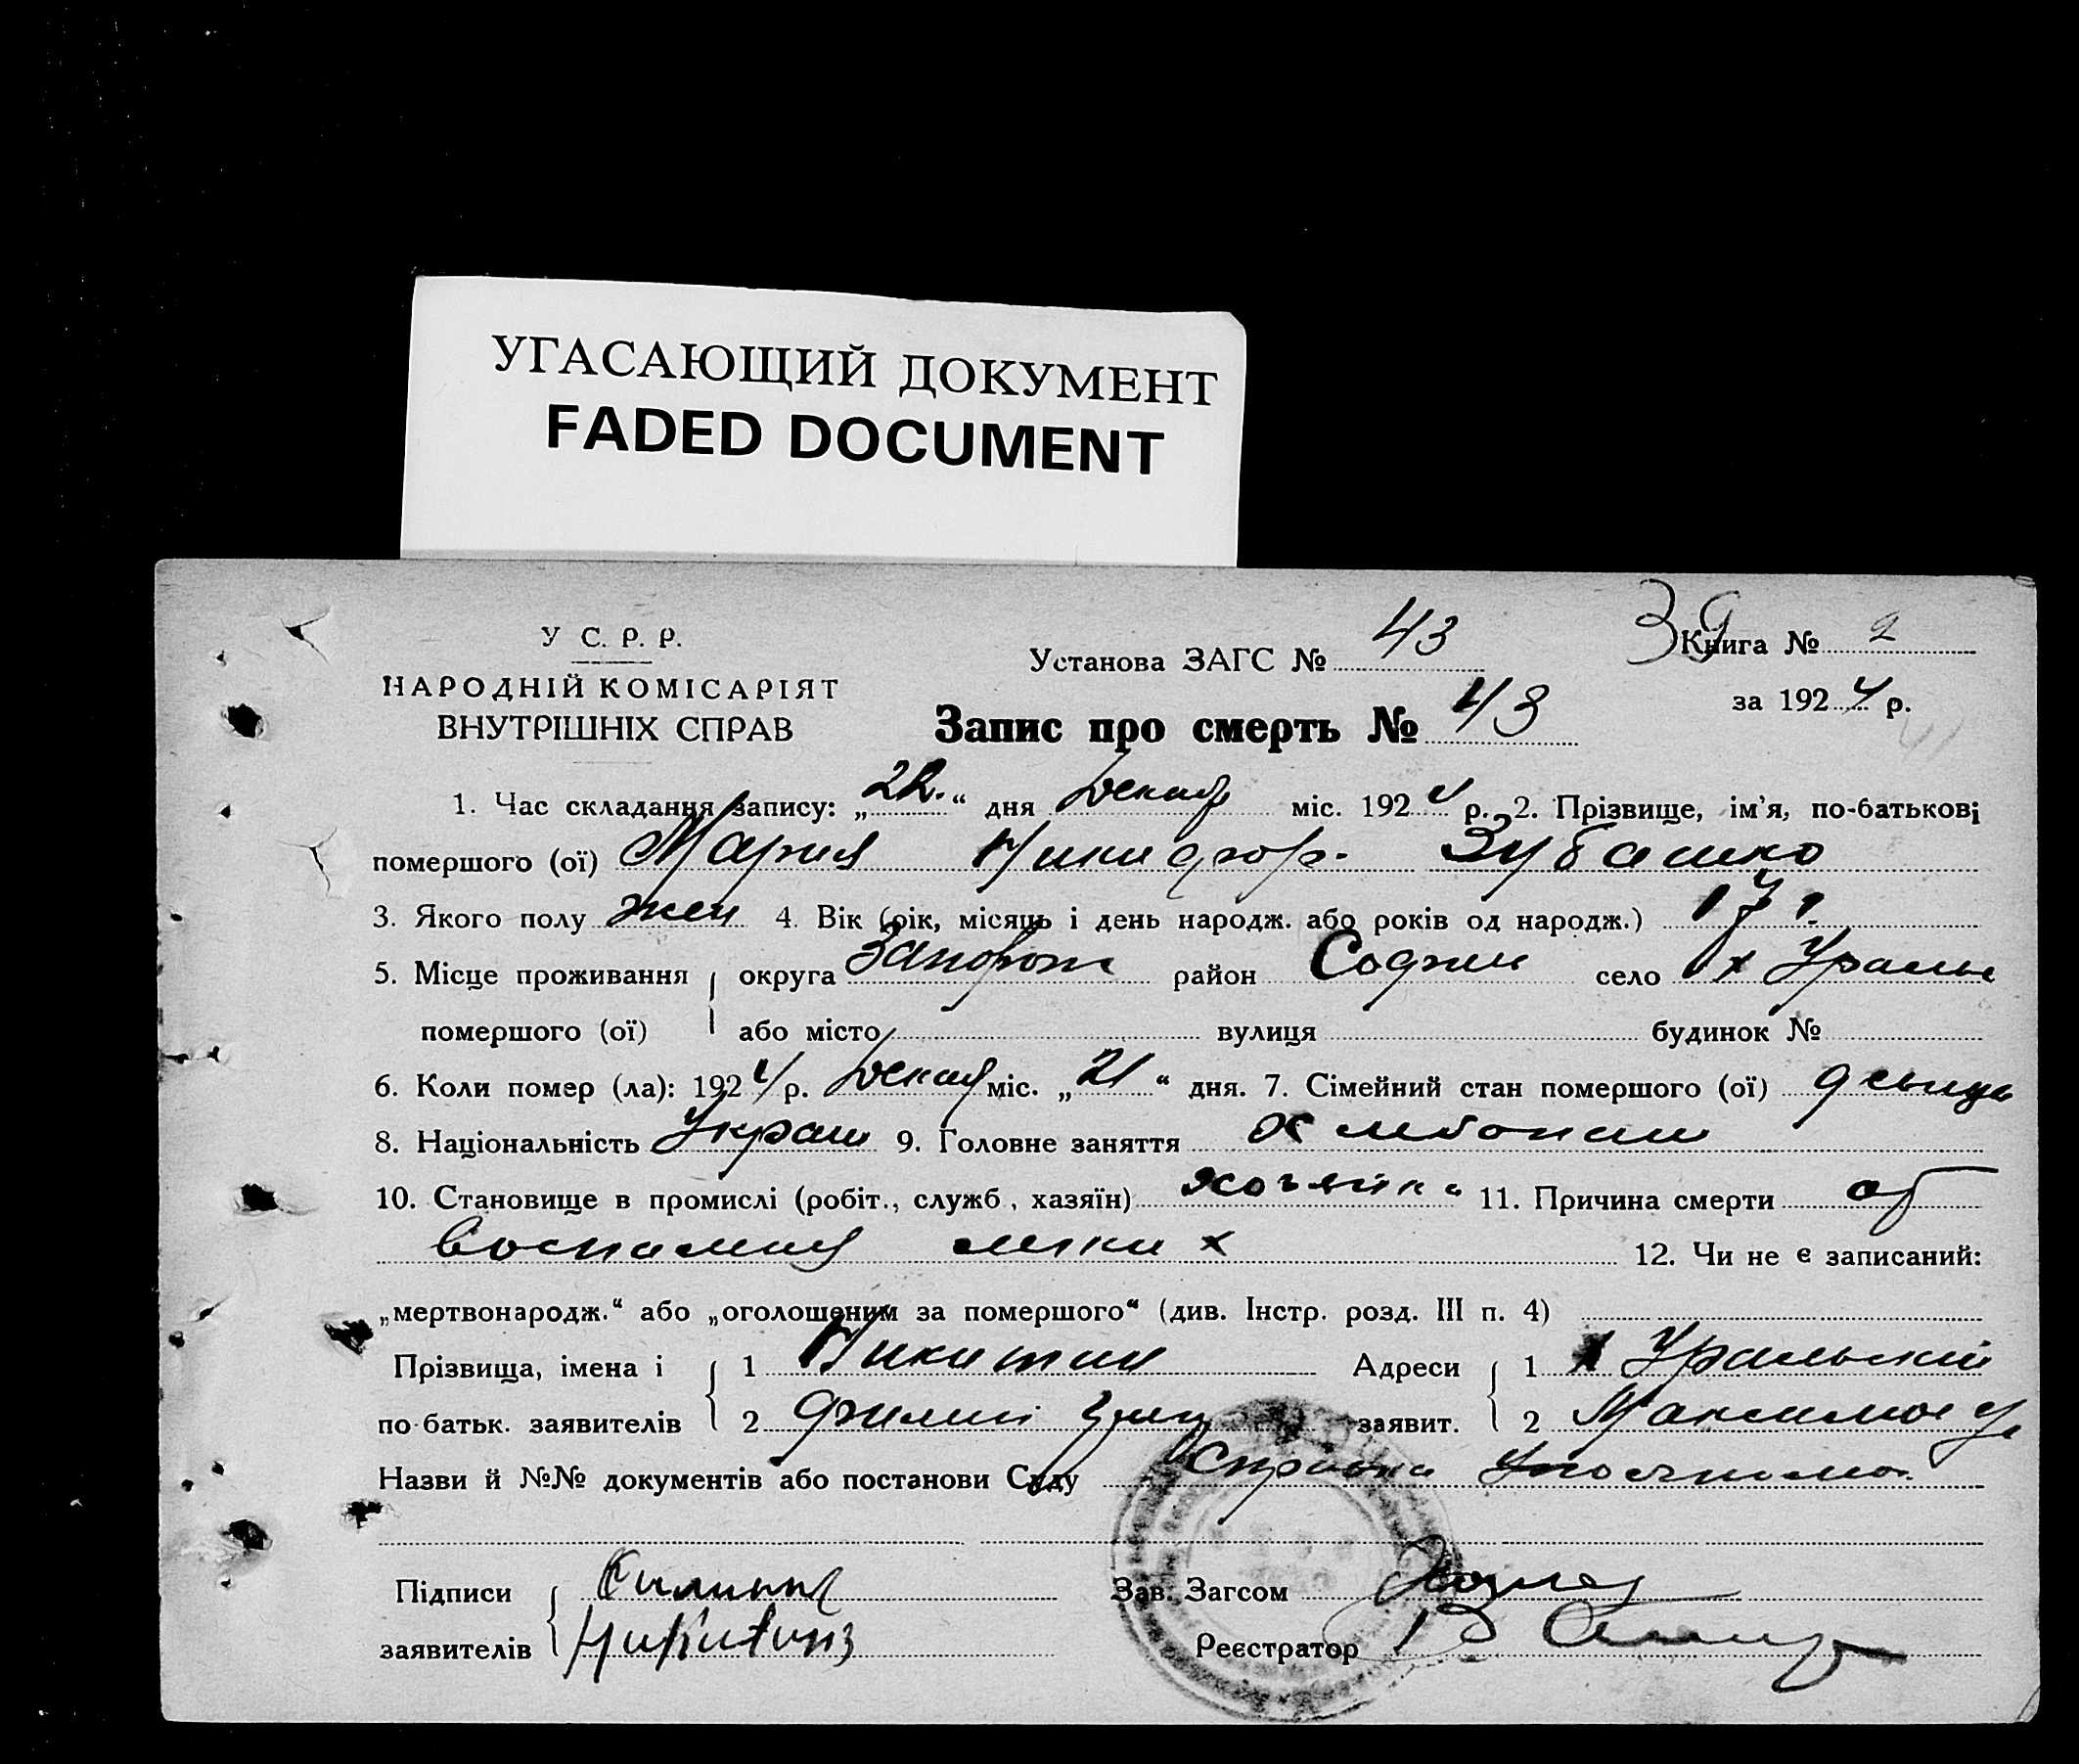 УГАСАЮЩИЙ ДОКУМЕНТ
FADED DOCUMENT
У С. Р. Р.
НАРОДНІЙ КОМІСАРІЯТ
ВНУТРІШНІХ СПРАВ
Установа ЗАГС № 43
39
Книга № 2
за 1924 р.
Запис про смерть № 43
1. Час складання запису: „22.“ дня Декабр міс. 1924 р. 2. Прізвище, ім'я, по-батькові
помершого (ої) Мария Никифор. Зубашко
3. Якого полу жен 4. Вік (рік, місяць і день народж. або років од народж.) 17
5. Місце проживання округа Запорож район Софии село х Уральс
помершого (ої) або місто вулиця будинок №
6. Коли помер (ла): 1924 р. Декаб міс. „21“ дня. 7. Сімейний стан помершого (ої) девица
8. Національність Украин 9. Головне заняття Хлебопаш
10. Становище в промислі (робіт., служб, хазяїн) хозяйка 11. Причина смерти от
воспаления легких 12. Чи не є записаний:
„мертвонародж.“ або „оголошеним за помершого“ (див. Інстр. розд. III п. 4)
Прізвища, імена і 1 Никитин Адреси 1 х Уральский
по-батьк. заявителів 2 Филип заявит. 2
Назви й №№ документів або постанови Суду Справка
Підписи Зав. Загсом
заявителів Реєстратор